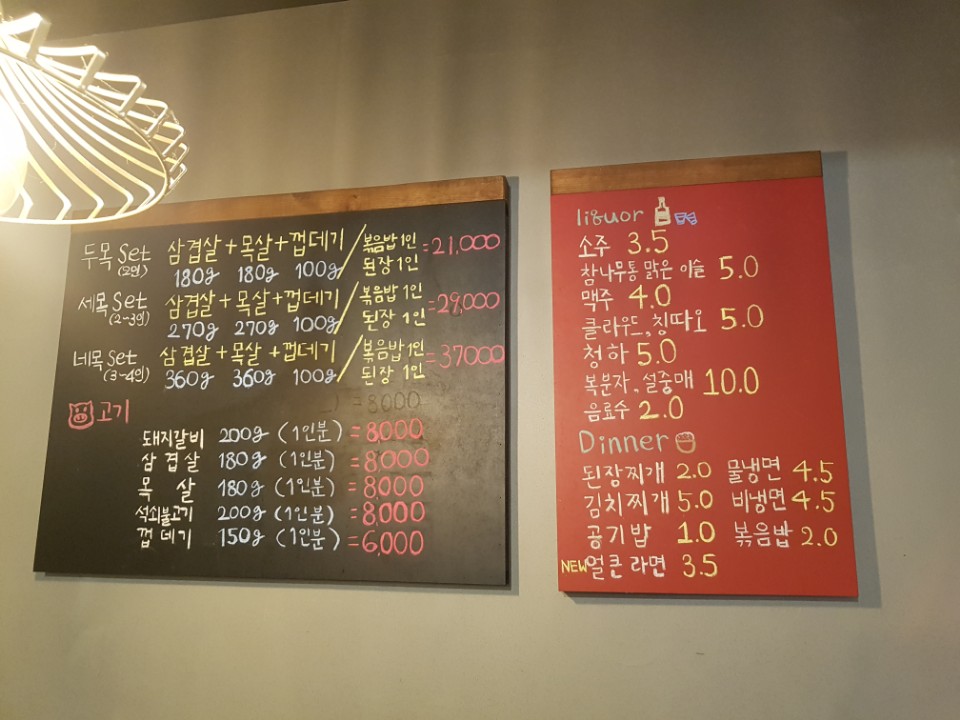 두목 Set 삼겹살+목살+껍데기 / 볶음밥 1인 =21,000
(2인) 180g 180g 100g 된장 1인
세목 Set 삼겹살+목살+껍데기 / 볶음밥 1인 =29,000
(2-3인) 270g 270g 100g 된장 1인
네목 Set 삼겹살+목살+껍데기 / 볶음밥 1인 =37000
(3-4인) 360g 360g 100g 된장 1인
) = 8000
고기
돼지갈비 200g (1인분) = 8,000
삼겹살 180g (1인분) = 8,000
목살 180g (1인분) = 8,000
석쇠불고기 200g (1인분) = 8,000
껍데기 150g (1인분) = 6,000
liguor
소주 3.5
참나무통 맑은 이슬 5.0
맥주 4.0
클라우드, 칭따오 5.0
청하 5.0
복분자, 설중매 10.0
음료수 2.0
Dinner
된장찌개 2.0 물냉면 4.5
김치찌개 5.0 비냉면 4.5
공기밥 1.0 볶음밥 2.0
NEW 얼큰 라면 3.5